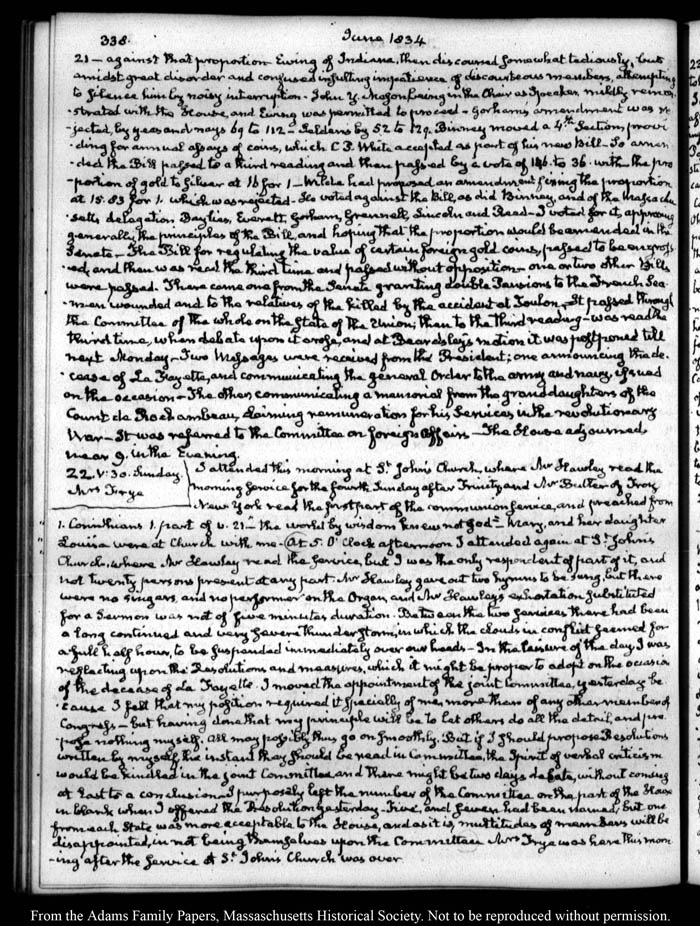 338.
June 1834
21 — against that proportion — Ewing of Indiana, then discoursed somewhat tediously, but
amidst great disorder and confused insulting impatience of discourteous members, attempting
to silence him by noisy interruption. John Y. Mason being in the Chair as Speaker mildly remon-
-strated with the House, and Ewing was permitted to proceed — Gorham's amendment was re-
-jected, by yeas and nays 69 to 112 — Selden's by 52 to 129. Binney moved a 4th. Section, provi-
-ding for annual assays of coins, which C. P. White accepted as part of his new Bill. So amen-
-ded the Bill passed to a third reading and then passed by a vote of 146. to 36. with the pro-
-portion of gold to silver at 16 for 1 — Wilde had proposed an amendment fixing the proportion
at 15.83 for 1. which was rejected. He voted against the Bill, as did Binney, and of the Massachu-
-setts delegation Baylies, Everett, Gorham, Grennell, Lincoln and Reed — I voted for it, approving
generally the principles of the Bill, and hoping that the proportion would be amended in the
Senate — The Bill for regulating the value of certain foreign gold coins, passed to be engross-
-ed, and then was read the third time and passed without opposition — one or two other Bills
were passed. There came one from the Senate granting double Pensions to the French Sea-
-men wounded and to the relatives of the killed by the accident at Toulon — It passed through
the Committee of the whole on the State of the Union; then to the third reading — was read the
third time, when debate upon it arose, and at Beardsley's motion it was postponed till
next Monday — Two Messages were received from the President; one announcing the de-
-cease of La Fayette, and communicating the general Order to the army and navy, issued
on the occasion — The other, communicating a memorial from the granddaughters of the
Count de Rochambeau, claiming remuneration for his Services in the revolutionary
War — It was referred to the Committee on foreign Affairs — The House adjourned
near 9. in the Evening.
22. V. 30. Sunday. I attended this morning at St. John's Church, where Mr Hawley read the
Mrs Frye morning Service for the fourth Sunday after Trinity and Mr Butler of Troy,
New York read the first part of the communion service, and preached from
1. Corinthians 1. part of v. 21 — the world by wisdom knew not God — Mary, and her daughter
Louisa were at Church with me. At 5. O'Clock afternoon I attended again at St. John's
Church, where Mr Hawley read the service, but I was the only respondent of part of it, and
not twenty persons present at any part. Mr Hawley gave out two hymns to be sung, but there
were no singers, and no performer on the Organ, and Mr Hawley's exhortation substituted
for a Sermon was not of five minutes duration. Between the two services there had been
a long continued and very severe thunder storm, in which the clouds in conflict seemed for
a full half hour, to be suspended immediately over our heads — In the leisure of the day, I was
reflecting upon the Resolutions and measures, which it might be proper to adopt on the occasion
of the decease of La Fayette. I moved the appointment of the joint Committee, yesterday be-
-cause I felt that my position required it specially of me, more than of any other member of
Congress — but having done that my principle will be to let others do all the detail, and pro-
-pose nothing myself. All may possibly thus go on smoothly. But if I should propose Resolutions
written by myself, the instant they should be read in Committee, the Spirit of verbal criticism
would be kindled in the joint Committee and there might be two days debate, without coming
at last to a conclusion. I purposely left the number of the Committee on the part of the House
in blank when I offered the Resolution yesterday — Five, and seven had been named, but one
from each State was more acceptable to the House, and as it is, multitudes of members will be
disappointed, in not being themselves upon the Committee. Mrs Frye was here this morn-
-ing after the service at St. John's Church was over
From the Adams Family Papers, Massachusetts Historical Society. Not to be reproduced without permission.